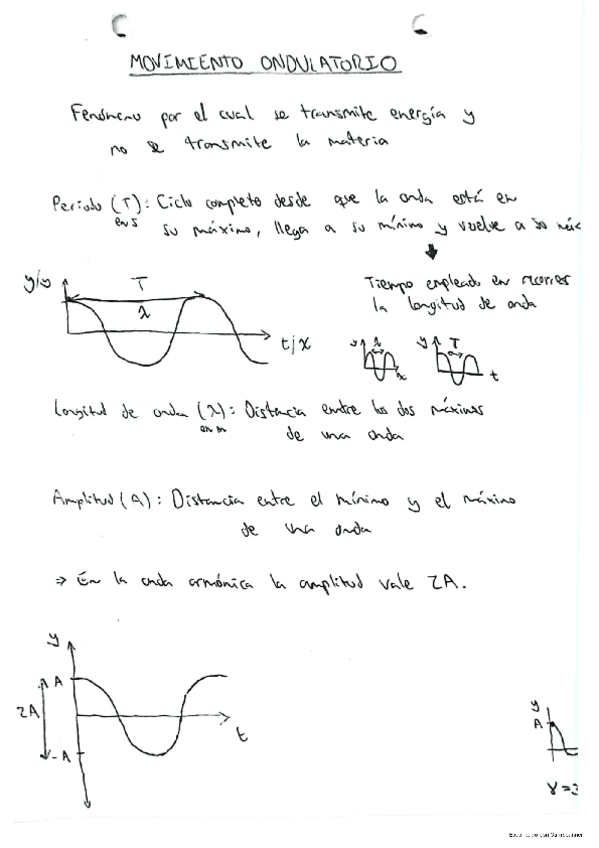 MOVIMIENTO ONDULATORIO
Fenómeno por el cual se transmite energía y
no se transmite la materia
Periodo (T): Ciclo completo desde que la onda está en
en s
su máximo, llega a su mínimo y vuelve a su máx
Tiempo empleado en recorrer
la longitud de onda
y/y
T
λ
t/x
y
λ
x
y
T
t
Longitud de onda (λ): Distancia entre los dos máximos
en m
de una onda
Amplitud (A): Distancia entre el mínimo y el máximo
de una onda
⇒ En la onda armónica la amplitud vale 2A.
y
A
2A
-A
t
y
A
Y=3